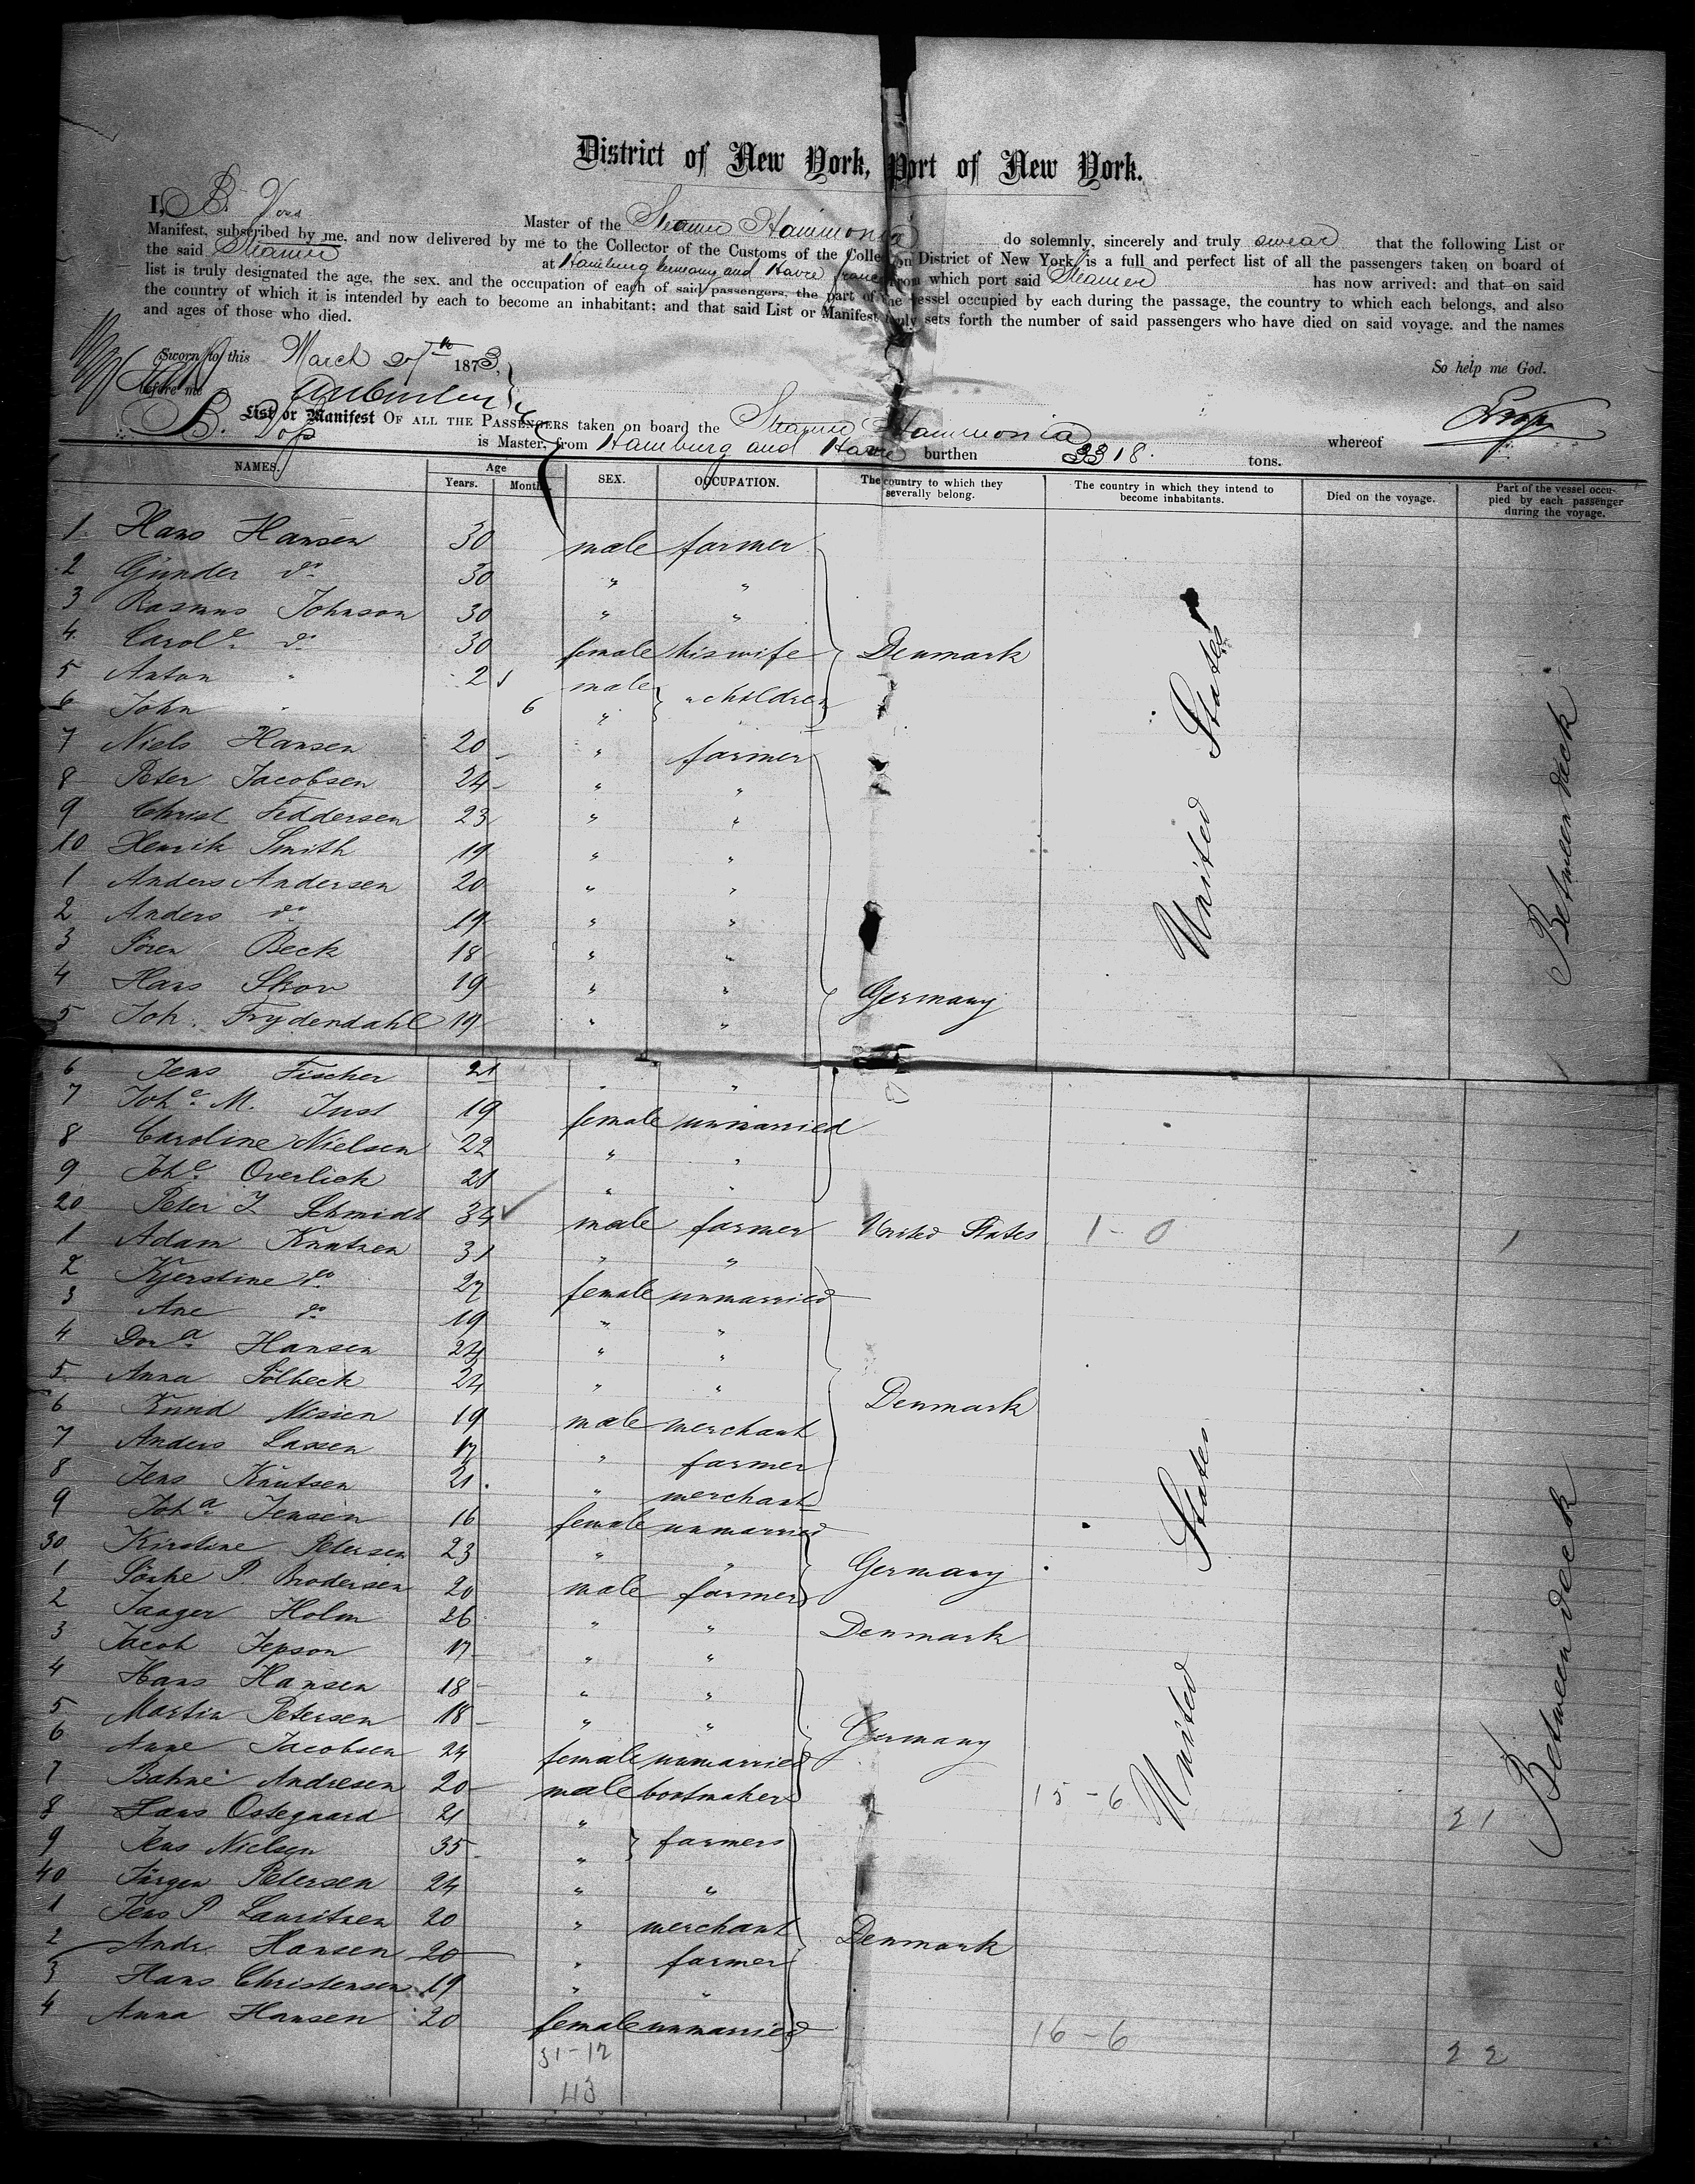 District of New York, Port of New York.
I, B. Voss Master of the Steamer Hammonia do solemnly, sincerely and truly swear that the following List or
Manifest, subscribed by me, and now delivered by me to the Collector of the Customs of the Collection District of New York, is a full and perfect list of all the passengers taken on board of
the said Steamer at Hamburg Germany and Havre France from which port said Steamer has now arrived; and that on said
list is truly designated the age, the sex, and the occupation of each of said passengers, the part of the vessel occupied by each during the passage, the country to which each belongs, and also
the country of which it is intended by each to become an inhabitant; and that said List or Manifest truly sets forth the number of said passengers who have died on said voyage, and the names
and ages of those who died.
So help me God.
Sworn to this March 27th 1873,
before me
List or Manifest OF ALL THE PASSENGERS taken on board the Steamer Hammonia whereof
B. Voss is Master, from Hamburg and Havre burthen 3318. tons.
NAMES. Age Years. Months. SEX. OCCUPATION. The country to which they severally belong. The country in which they intend to become inhabitants. Died on the voyage. Part of the vessel occupied by each passenger during the voyage.
1 Hans Hansen 30 male farmer
2 Gunder do 30 " "
3 Rasmus Johnson 30 " "
4 Carole do 30 female his wife Denmark
5 Anton " 2 male
6 John " 6 " " children
7 Niels Hansen 20 " farmer
8 Peter Jacobsen 24 " "
9 Christ Feddersen 23 " "
10 Henrik Smith 19 " "
1 Anders Andersen 20 " "
2 Anders do 19 " "
3 Sören Beck 18 " "
4 Hans Skov 19 " " Germany
5 Joh. Frydendahl 19 " "
United States
Between deck
6 Jens Fischer 21 " "
7 Johe M. Just 19 female unmarried
8 Caroline Nielsen 22 " "
9 Johe Overlich 21 " "
20 Peter J Schmidt 34 male farmer United States 1-0 1
1 Adam Knutzen 31 " "
2 Kjerstine do 27 female unmarried
3 Ane do 19 " "
4 Dora Hansen 24 " "
5 Anna Sölbeck 24 " " Denmark
6 Knud Nissen 19 male merchant
7 Anders Lassen 17 " farmer
8 Jens Knutsen 21 " merchant
9 Joha Jensen 16 female unmarried
30 Kirstine Petersen 23 " " Germany
1 Sönke P. Brodersen 20 male farmer
2 Jaager Holm 26 " " Denmark
3 Jacob Jepson 17 " "
4 Hans Hansen 18 " "
5 Martin Petersen 18 " " Germany
6 Anne Jacobsen 24 female unmarried
7 Bahne Andresen 20 male bootmaker 15-6 21
8 Hans Ostegaard 21 " farmers
9 Jens Nielsen 35 "
40 Jürgen Petersen 24 " "
1 Jens P Lauritzen 20 " merchant Denmark
2 Andr. Hansen 20 " farmer
3 Hans Christensen 19 " "
4 Anna Hansen 20 female unmarried 16-6 22
United States
Between deck
31-12
43